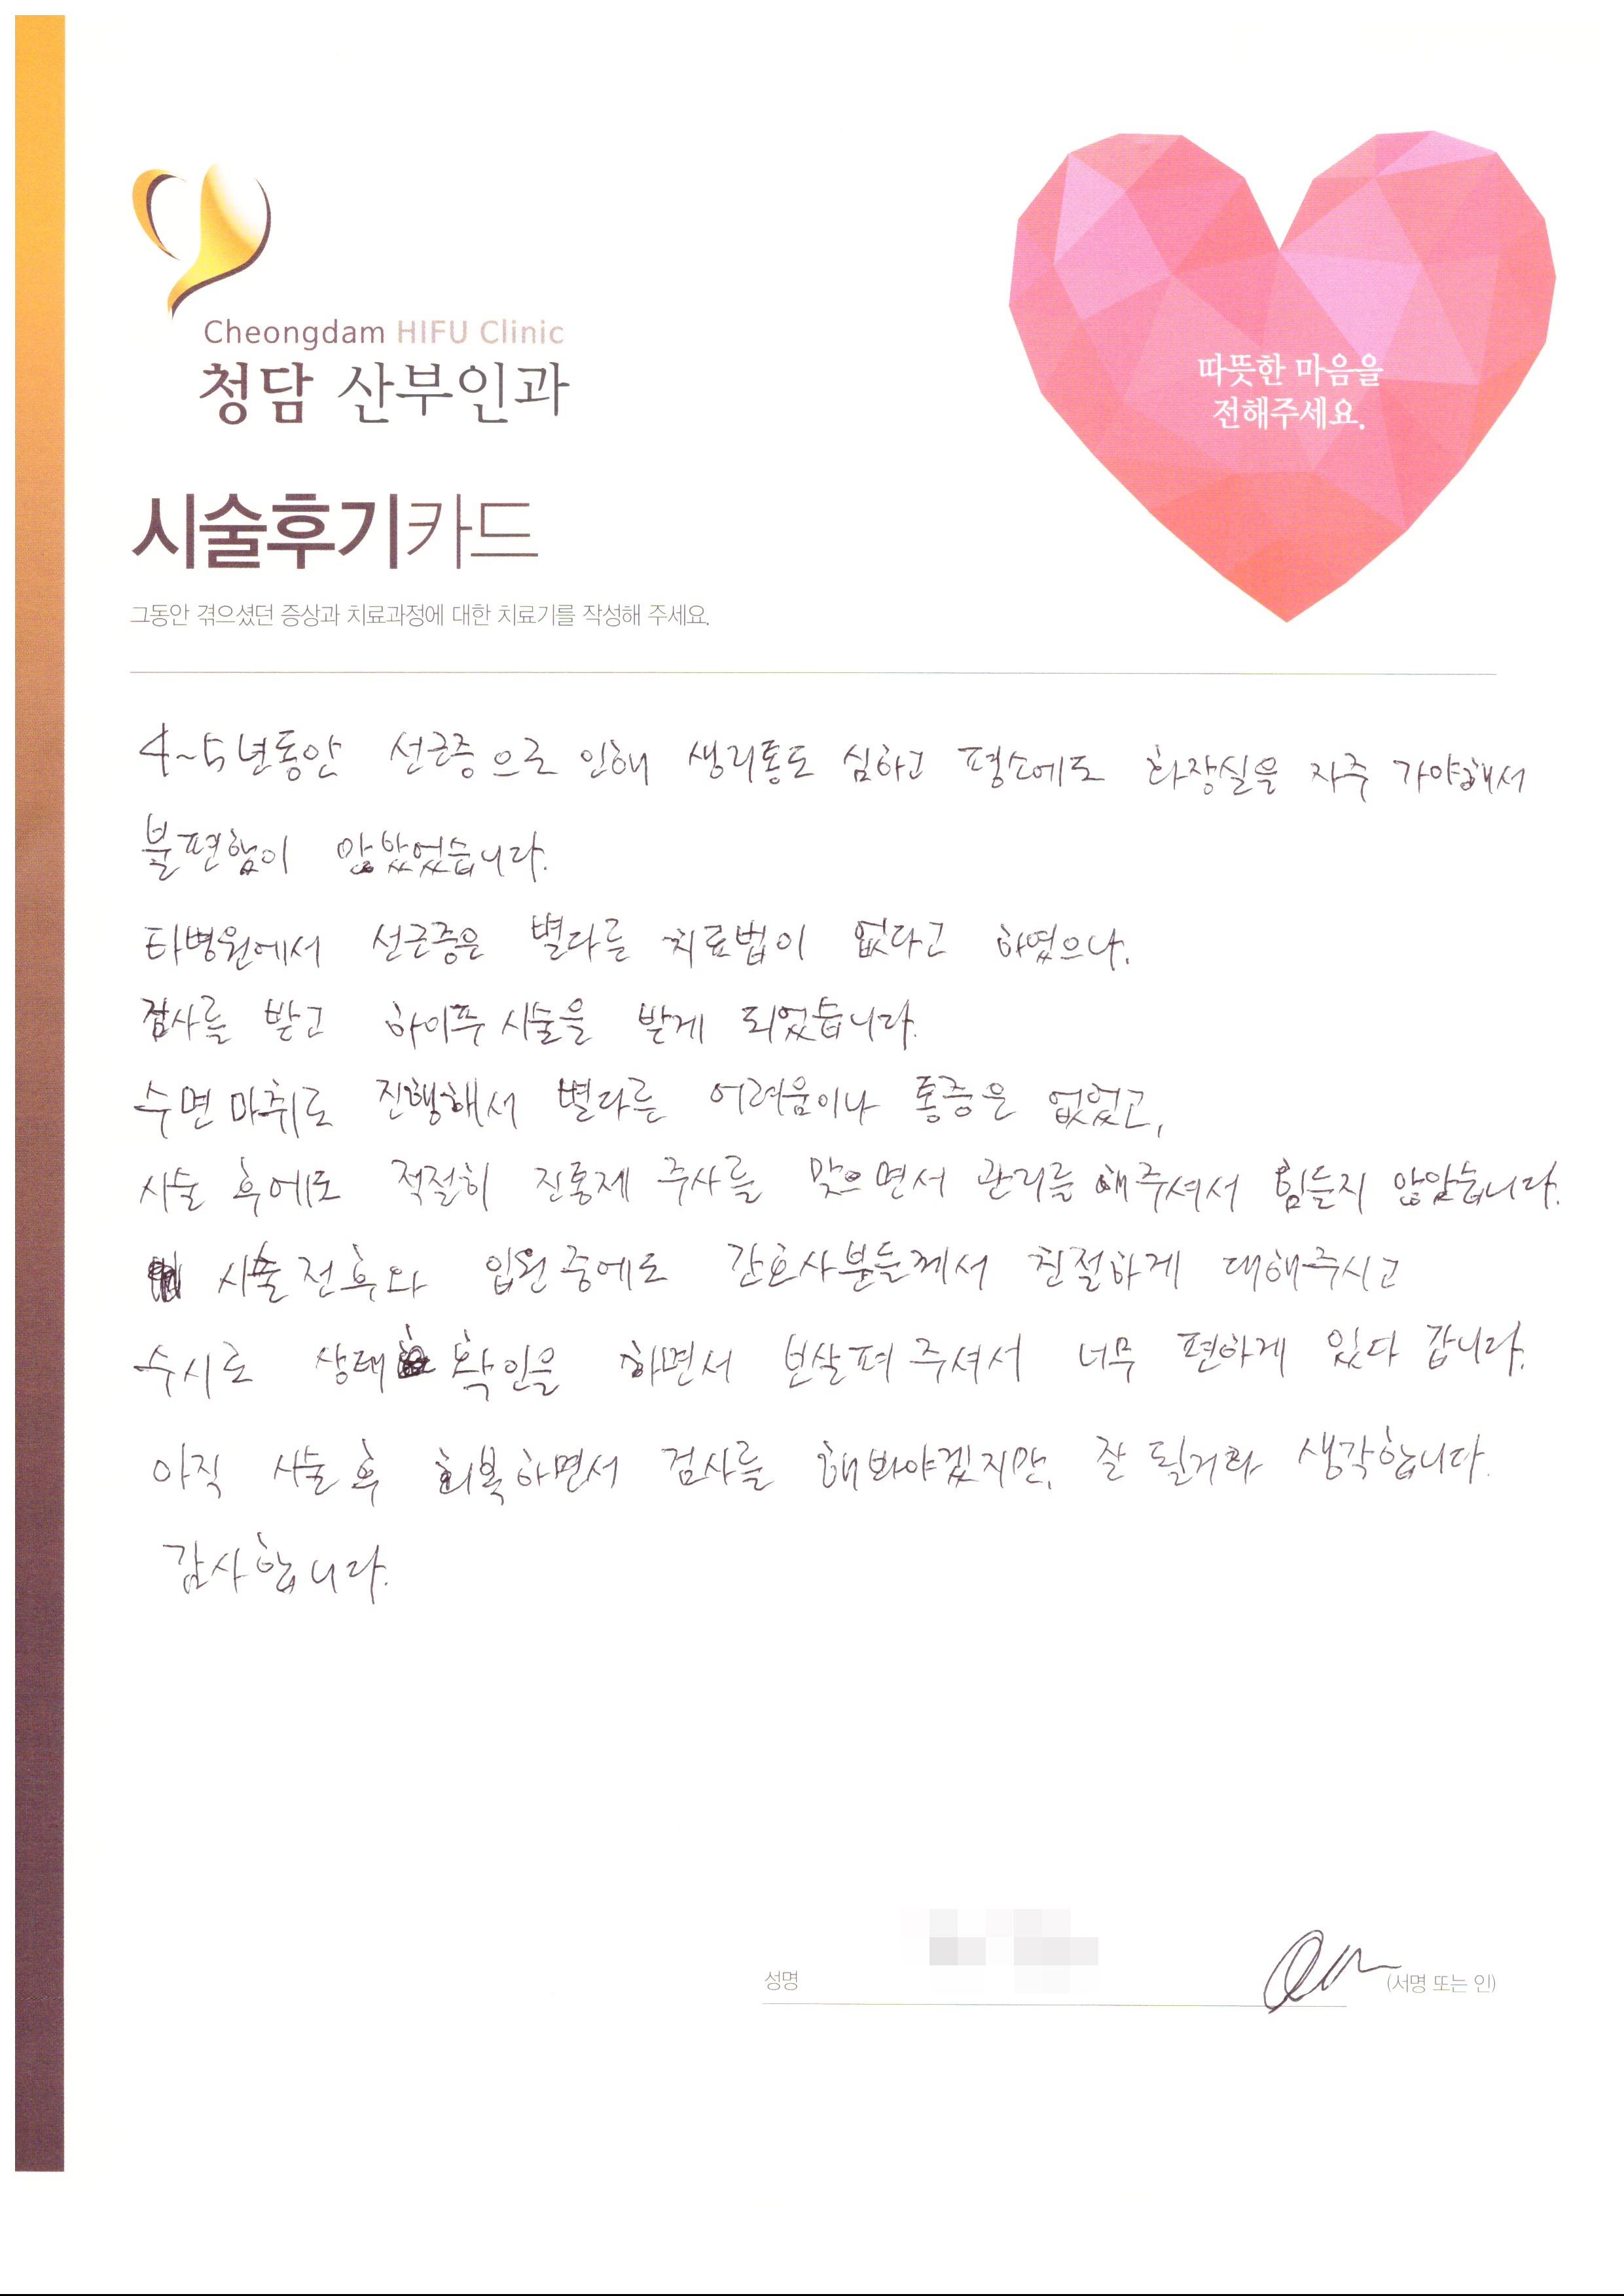 Cheongdam HIFU Clinic
청담 산부인과
따뜻한 마음을
전해주세요.
시술후기카드
그동안 겪으셨던 증상과 치료과정에 대한 치료기를 작성해 주세요.
4~5년동안 선근증으로 인해 생리통도 심하고 평소에도 화장실을 자주 가야해서
불편함이 많았었습니다.
타병원에서 선근증은 별다를 치료법이 없다고 하였으나.
검사를 받고 하이푸 시술을 받게 되었습니다.
수면마취로 진행해서 별다른 어려움이나 통증은 없었고,
시술 후에도 적절히 진통제 주사를 맞으면서 관리를 해주셔서 힘들지 않았습니다.
시술전후와 입원중에도 간호사분들께서 친절하게 대해주시고
수시로 상태 확인을 하면서 보살펴 주셔서 너무 편하게 있다 갑니다.
아직 시술후 회복하면서 검사를 해봐야겠지만, 잘 될거라 생각합니다.
감사합니다.
성명 (서명 또는 인)